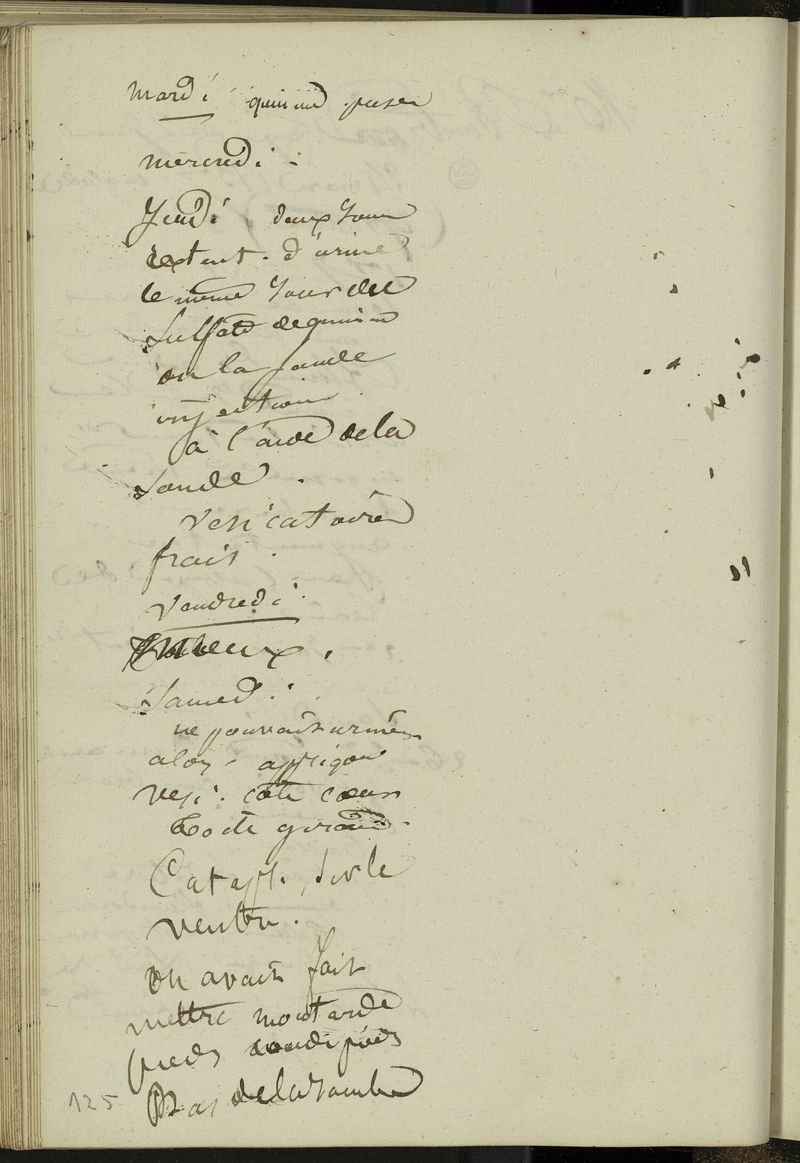 mardi quinine
mercredi.
Jeudi deux jours
retent. d'urine
le même jour du
sulfate de quinine
on la sonde
injection
à l'aide de la
sonde.
vesicatoire
frais.
vendredi
mieux.
Samedi.
ne pouvait uriner
alors appliqué
vesi. côté cœur
Catapl. sur le
ventre.
on avait fait
mettre moutarde
pieds
Bas de la jambe
125